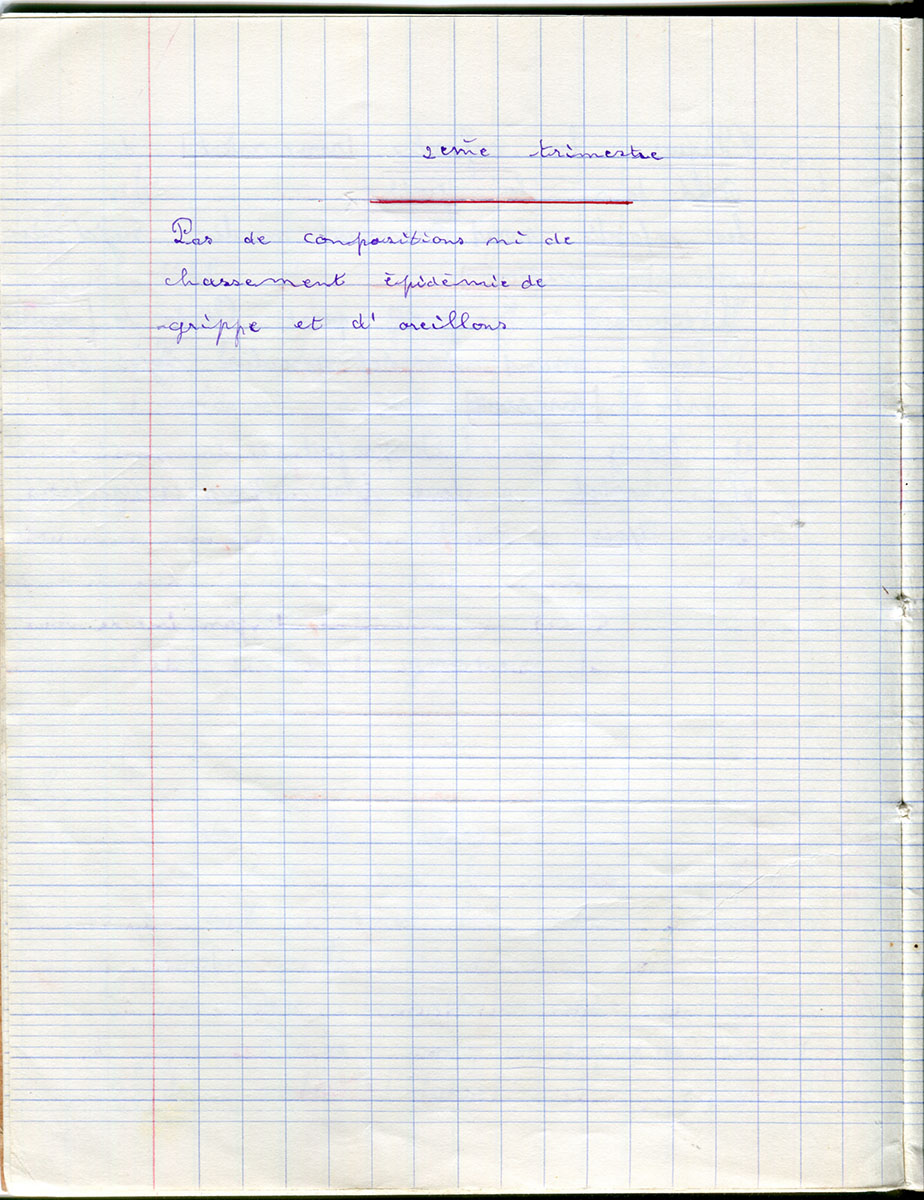 2ème trimestre
Pas de compositions ni de
chassement épidémie de
grippe et d' oreillons